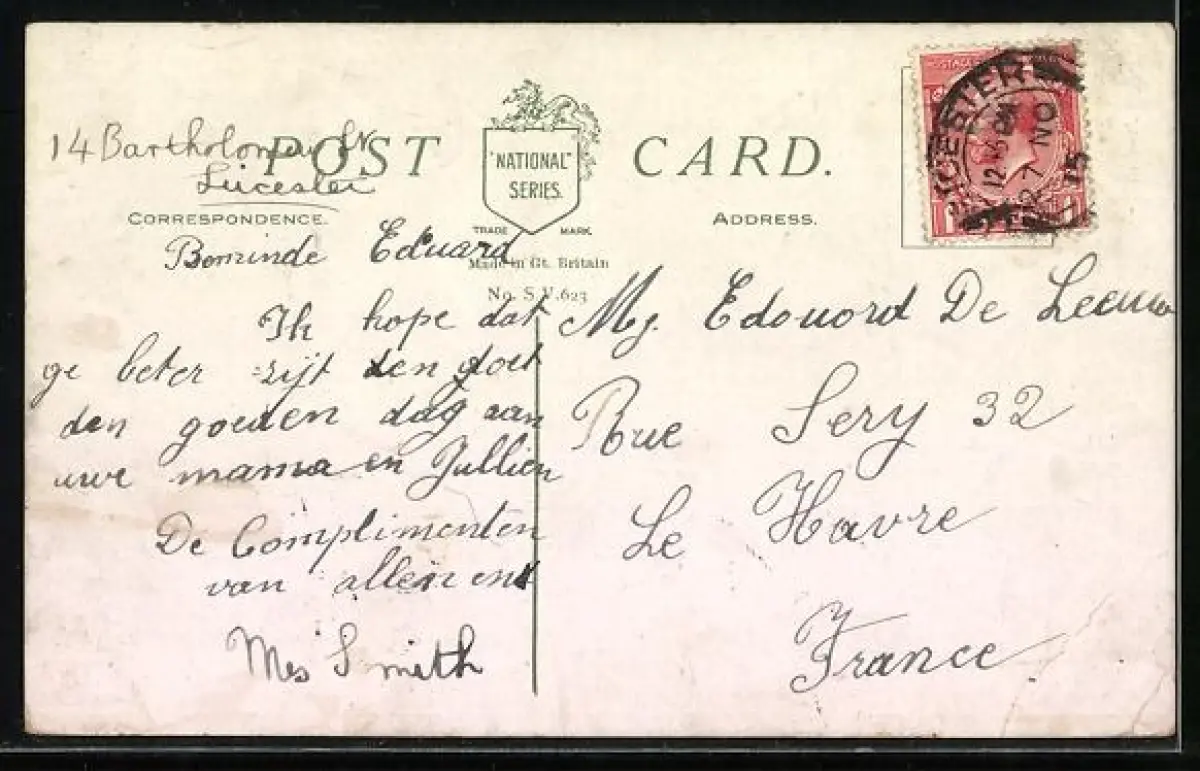 14 Bartholomew St
Leicester
POST CARD.
"NATIONAL"
SERIES.
TRADE MARK.
CORRESPONDENCE.
ADDRESS.
Made in Gt. Britain
No. S.V.623
Beminde Eduard
Ik hope dat
ge beter zijt en doet
den goeden dag aan
uwe mama en Jullien
De Complimenten
van allen
Mrs Smith
Edouard De Leeuw
Rue Sery 32
Le Havre
France
12
7 NO
15